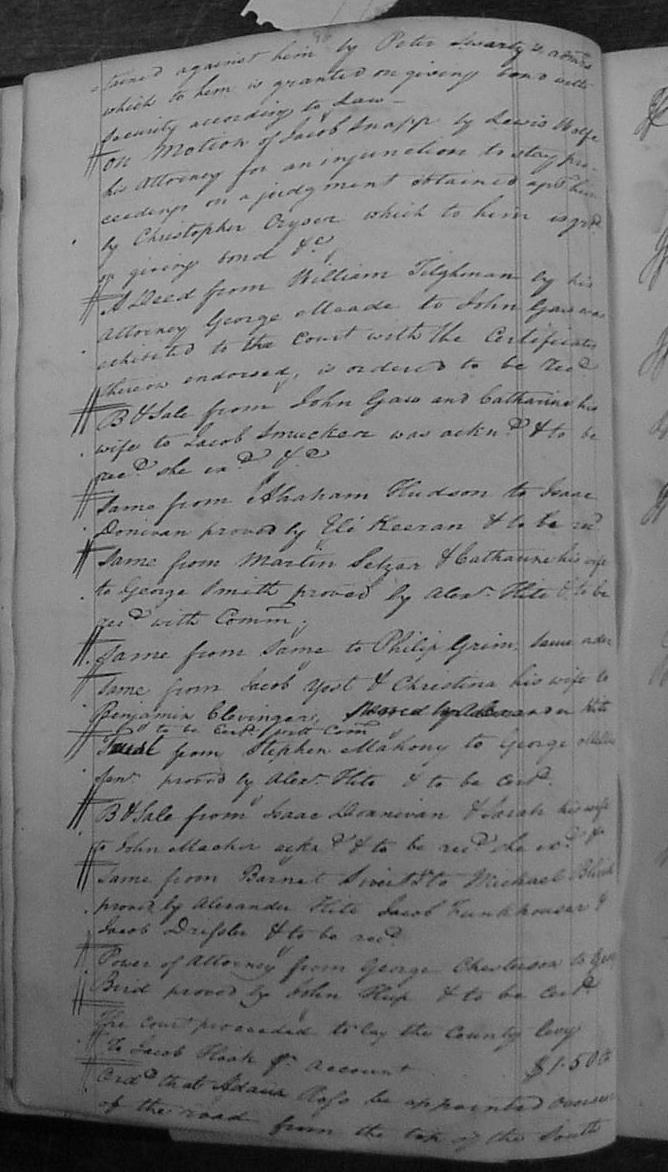 tained against him by Peter Swartz &
which to him is granted on giving bond with
security according to Law—
On Motion of Jacob Snapp by Lewis Wolfe
his Attorney for an injunction to stay pro-
ceedings on a judgment obtained agst him
by Christopher which to him is grd
on giving bond &c
A Deed from William Tilghman by his
Attorney George Meade to John Gaw was
exhibited to the Court with the Certificates
thereon endorsed, is ordered to be recd
B & Sale from John Gaw and Catharine his
wife to Jacob Smucker was acknd & to be
recd she exd &c
Same from Abraham Hudson to Isaac
Donivan proved by Eli Keeran & to be recd
Same from Martin Setzar & Catharine his wife
to George Smith proved by Alexr Hite & to be
recd with Commn;
Same from Same to Philip Grim, same order
Same from Jacob Yost & Christina his wife to
Benjamin Clevinger, proved by Alexander Hite
& to be Certd with Comn
from Stephen Mahony to George
Senr proved by Alexr Hite & to be certd.
B & Sale from Isaac Donnevan & Sarah his wife
to John Macher ackd & to be recd she exd &c
Same from Barnet to Michael
proved by Alexander Hite Jacob Funkhouser &
Jacob Dressler & to be recd.
Power of Attorney from George Chesterson to Geo
Bird proved by John Hup & to be certd
The court proceeded to lay the County levy
To Jacob Haak pr account $1.50 Cts
Ordd that Adam Ross be appointed overseer
of the road from the top of the South